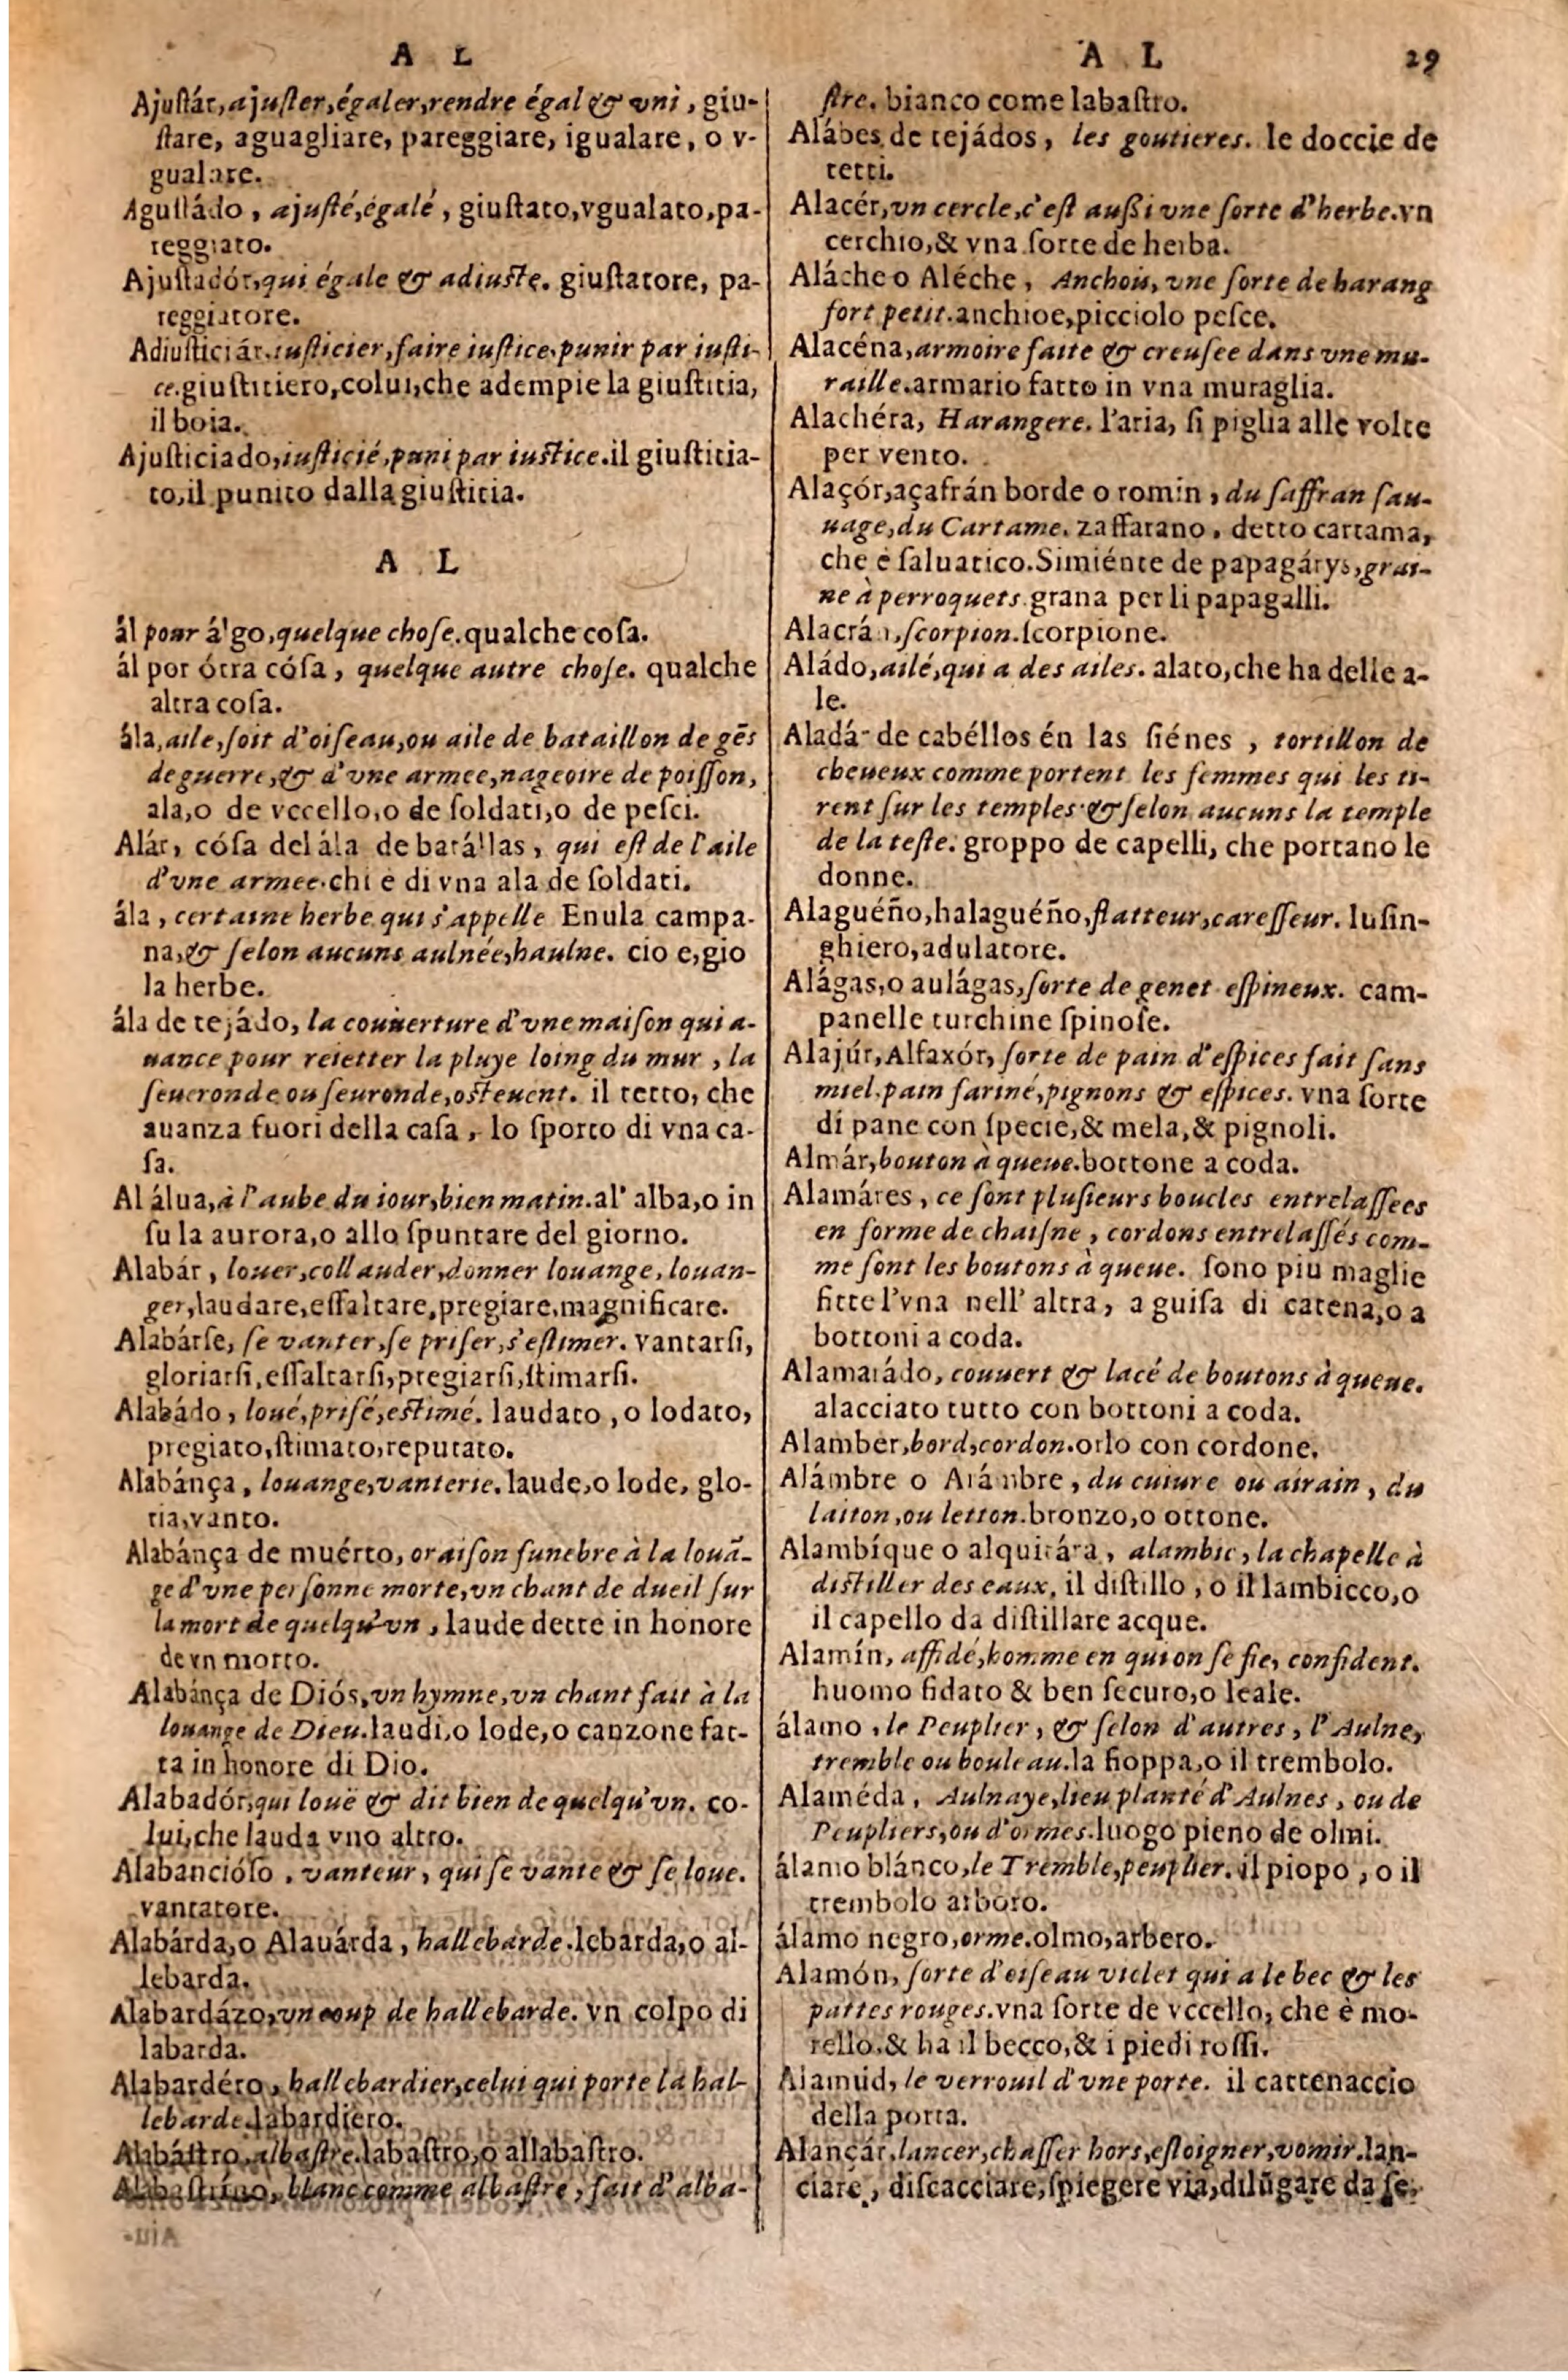 A L
Ajuſtár, ajuſter, égaler, rendre égal & vni, giu-
ſtare, aguagliare, pareggiare, igualare, o v-
gualare.
Aguſtádo, ajuſté, égalé, giuſtato, vgualato, pa-
reggiato.
Ajuſtadór, qui égale & adiuſte. giuſtatore, pa-
reggiatore.
Adiuſticiár, iuſticier, faire iuſtice, punir par iuſti-
ce. giuſtitiero, colui, che adempie la giuſtitia,
il boia.
Ajuſticiado, iuſticié, puni par iuſtice. il giuſtitia-
to, il punito dalla giuſtitia.
A L
ál pour álgo, quelque choſe. qualche coſa.
ál por ótra cóſa, quelque autre choſe. qualche
altra coſa.
ála, aile, ſoit d'oiſeau, ou aile de bataillon de gēs
de guerre, & d'vne armee, nageoire de poiſſon,
ala, o de vccello, o de ſoldati, o de peſci.
Alár, cóſa del ála de batállas, qui eſt de l'aile
d'vne armee. chi e di vna ala de ſoldati.
ála, certaine herbe qui s'appelle Enula campa-
na, & ſelon aucuns aulnée, haulne. cio e, gio
la herbe.
ála de tejádo, la couuerture d'vne maiſon qui a-
uance pour reietter la pluye loing du mur, la
ſeueronde ou ſeuronde, oſteuent. il tetto, che
auanza fuori della caſa, lo ſporto di vna ca-
ſa.
Al álua, à l'aube du iour, bien matin. al' alba, o in
ſu la aurora, o allo ſpuntare del giorno.
Alabár, louer, collauder, donner louange, louan-
ger, laudare, eſſaltare, pregiare, magnificare.
Alabárſe, ſe vanter, ſe priſer, s'eſtimer. vantarſi,
gloriarſi, eſſaltarſi, pregiarſi, ſtimarſi.
Alabádo, loué, priſé, eſtimé. laudato, o lodato,
pregiato, ſtimato, reputato.
Alabánça, louange, vanterie. laude, o lode, glo-
ria, vanto.
Alabánça de muérto, oraiſon funebre à la louã-
ge d'vne perſonne morte, vn chant de dueil ſur
la mort de quelqu'vn, laude dette in honore
de vn morto.
Alabánça de Diós, vn hymne, vn chant fait à la
louange de Dieu. laudi, o lode, o canzone fat-
ta in honore di Dio.
Alabadór, qui louë & dit bien de quelqu'vn. co-
lui, che lauda vno altro.
Alabancióſo, vanteur, qui ſe vante & ſe loue.
vantatore.
Alabárda, o Alauárda, hallebarde. lebarda, o al-
lebarda.
Alabardázo, vn coup de hallebarde. vn colpo di
labarda.
Alabardéro, hallebardier, celui qui porte la hal-
lebarde. labardiero.
Alabáſtro, albaſtre. labaſtro, o allabaſtro.
Alabaſtríno, blanc comme albaſtre, fait d'alba-
A L 29
ſtre. bianco come labaſtro.
Alábes de tejádos, les goutieres. le doccie de
tetti.
Alacér, vn cercle, c'eſt außi vne ſorte d'herbe. vn
cerchio, & vna ſorte de herba.
Aláche o Aléche, Anchois, vne ſorte de harang
fort petit. anchioe, picciolo peſce.
Alacéna, armoire faite & creuſee dans vne mu-
raille. armario fatto in vna muraglia.
Alachéra, Harangere. l'aria, ſi piglia alle volte
per vento.
Alaçór, açafrán borde o romin, du ſaffran ſau-
uage, du Cartame. zaffarano, detto cartama,
che è ſaluatico. Simiénte de papagáıys, grai-
ne à perroquets. grana per li papagalli.
Alacrán, ſcorpion. ſcorpione.
Aládo, ailé, qui a des ailes. alato, che ha delle a-
le.
Aladár de cabéllos én las ſiénes, tortillon de
cheueux comme portent les femmes qui les ti-
rent ſur les temples & ſelon aucuns la temple
de la teſte. groppo de capelli, che portano le
donne.
Alaguéño, halaguéño, flatteur, careſſeur. luſin-
ghiero, adulatore.
Alágas, o aulágas, ſorte de genet eſpineux. cam-
panelle turchine ſpinoſe.
Alajúr, Alfaxór, ſorte de pain d'eſpices fait ſans
miel, pain fariné, pignons & eſpices. vna ſorte
di pane con ſpecie, & mela, & pignoli.
Almár, bouton à queue. bottone a coda.
Alamáres, ce ſont pluſieurs boucles entrelaſſees
en forme de chaiſne, cordons entrelaſſés com-
me ſont les boutons à queue. ſono piu maglie
fitte l'vna nell' altra, a guiſa di catena, o a
bottoni a coda.
Alamarádo, couuert & lacé de boutons à queue.
alacciato tutto con bottoni a coda.
Alamber, bord, cordon. orlo con cordone.
Alámbre o Arámbre, du cuiure ou airain, du
laiton, ou letton. bronzo, o ottone.
Alambíque o alquitára, alambic, la chapelle à
diſtiller des eaux. il diſtillo, o il lambicco, o
il capello da diſtillare acque.
Alamín, affidé, homme en qui on ſe fie, confident.
huomo fidato & ben ſecuro, o leale.
álamo, le Peuplier, & ſelon d'autres, l'Aulne,
tremble ou bouleau. la fioppa, o il trembolo.
Alaméda, Aulnaye, lieu planté d'Aulnes, ou de
Peupliers, ou d'ormes. luogo pieno de olmi.
álamo blánco, le Tremble, peuplier. il piopo, o il
trembolo arboro.
álamo negro, orme. olmo, arbero.
Alamón, ſorte d'oiſeau violet qui a le bec & les
pattes rouges. vna ſorte de vccello, che è mo-
rello, & ha il becco, & i piedi roſſi.
Alamúd, le verrouil d'vne porte. il cattenaccio
della porta.
Alançár, lancer, chaſſer hors, eſloigner, vomir. lan-
ciare, diſcacciare, ſpiegere via, dilũgare da ſe.